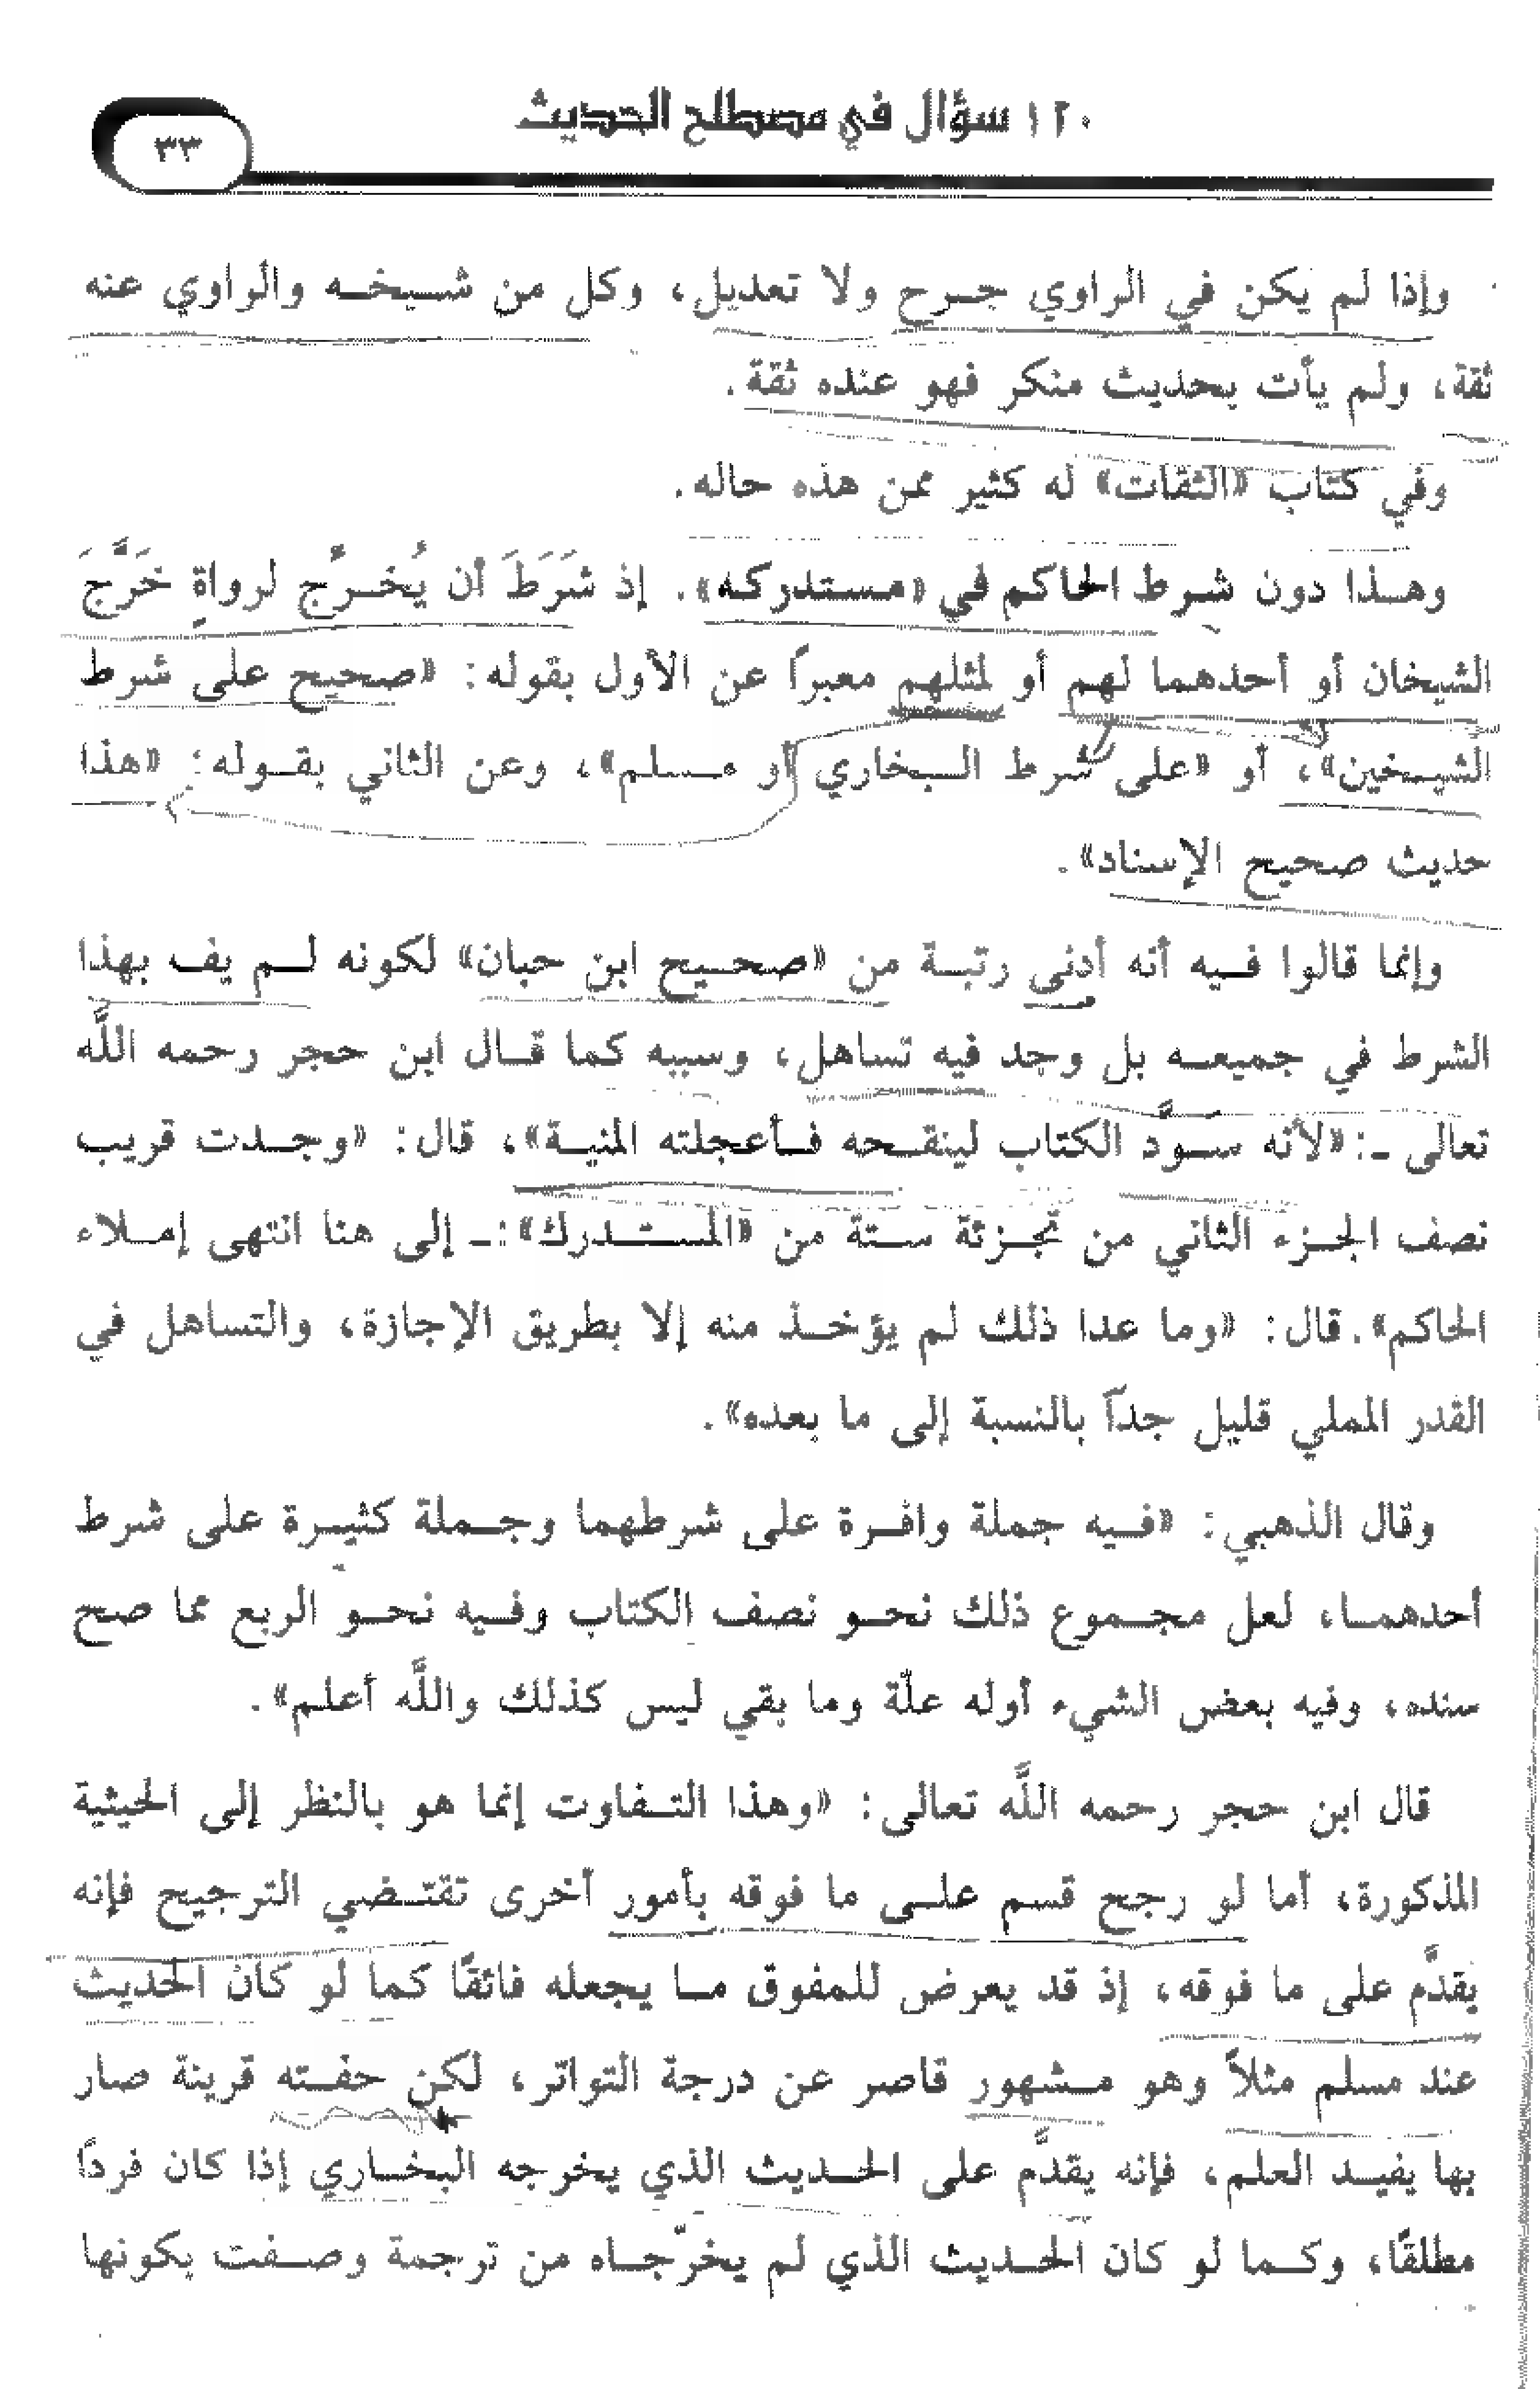 ١٢٠ سؤال في مصطلح الحديث
٣٣
وإذا لم يكن في الراوي جرح ولا تعديل، وكل من شيخه والراوي عنه
ثقة، ولم يأت بحديث منكر فهو عنده ثقة.
وفي كتاب «الثقات» له كثير ممن هذه حاله.
وهذا دون شرط الحاكم في «مستدركه». إذ شَرَطَ أن يُخرِّج لرواةٍ خَرَّجَ
الشيخان أو أحدهما لهم أو لمثلهم معبراً عن الأول بقوله: «صحيح على شرط
الشيخين»، أو «على شرط البخاري أو مسلم»، وعن الثاني بقوله: «هذا
حديث صحيح الإسناد».
وإنما قالوا فيه أنه أدنى رتبة من «صحيح ابن حبان» لكونه لم يف بهذا
الشرط في جميعه بل وجد فيه تساهل، وسببه كما قال ابن حجر رحمه اللَّه
تعالى ـ: «لأنه سوَّد الكتاب لينقحه فأعجلته المنية»، قال: «وجدت قريب
نصف الجزء الثاني من تجزئة ستة من «المستدرك»: ـ إلى هنا انتهى إملاء
الحاكم». قال: «وما عدا ذلك لم يؤخذ منه إلا بطريق الإجازة، والتساهل في
القدر المملي قليل جداً بالنسبة إلى ما بعده».
وقال الذهبي: «فيه جملة وافرة على شرطهما وجملة كثيرة على شرط
أحدهما، لعل مجموع ذلك نحو نصف الكتاب وفيه نحو الربع مما صح
سنده، وفيه بعض الشيء أوله علّة وما بقي ليس كذلك واللَّه أعلم».
قال ابن حجر رحمه اللَّه تعالى: «وهذا التفاوت إنما هو بالنظر إلى الحيثية
المذكورة، أما لو رجح قسم على ما فوقه بأمور أخرى تقتضي الترجيح فإنه
يقدَّم على ما فوقه، إذ قد يعرض للمفوق ما يجعله فائقًا كما لو كان الحديث
عند مسلم مثلاً وهو مشهور قاصر عن درجة التواتر، لكن حفته قرينة صار
بها يفيد العلم، فإنه يقدَّم على الحديث الذي يخرجه البخاري إذا كان فردًا
مطلقًا، وكما لو كان الحديث الذي لم يخرّجاه من ترجمة وصفت بكونها